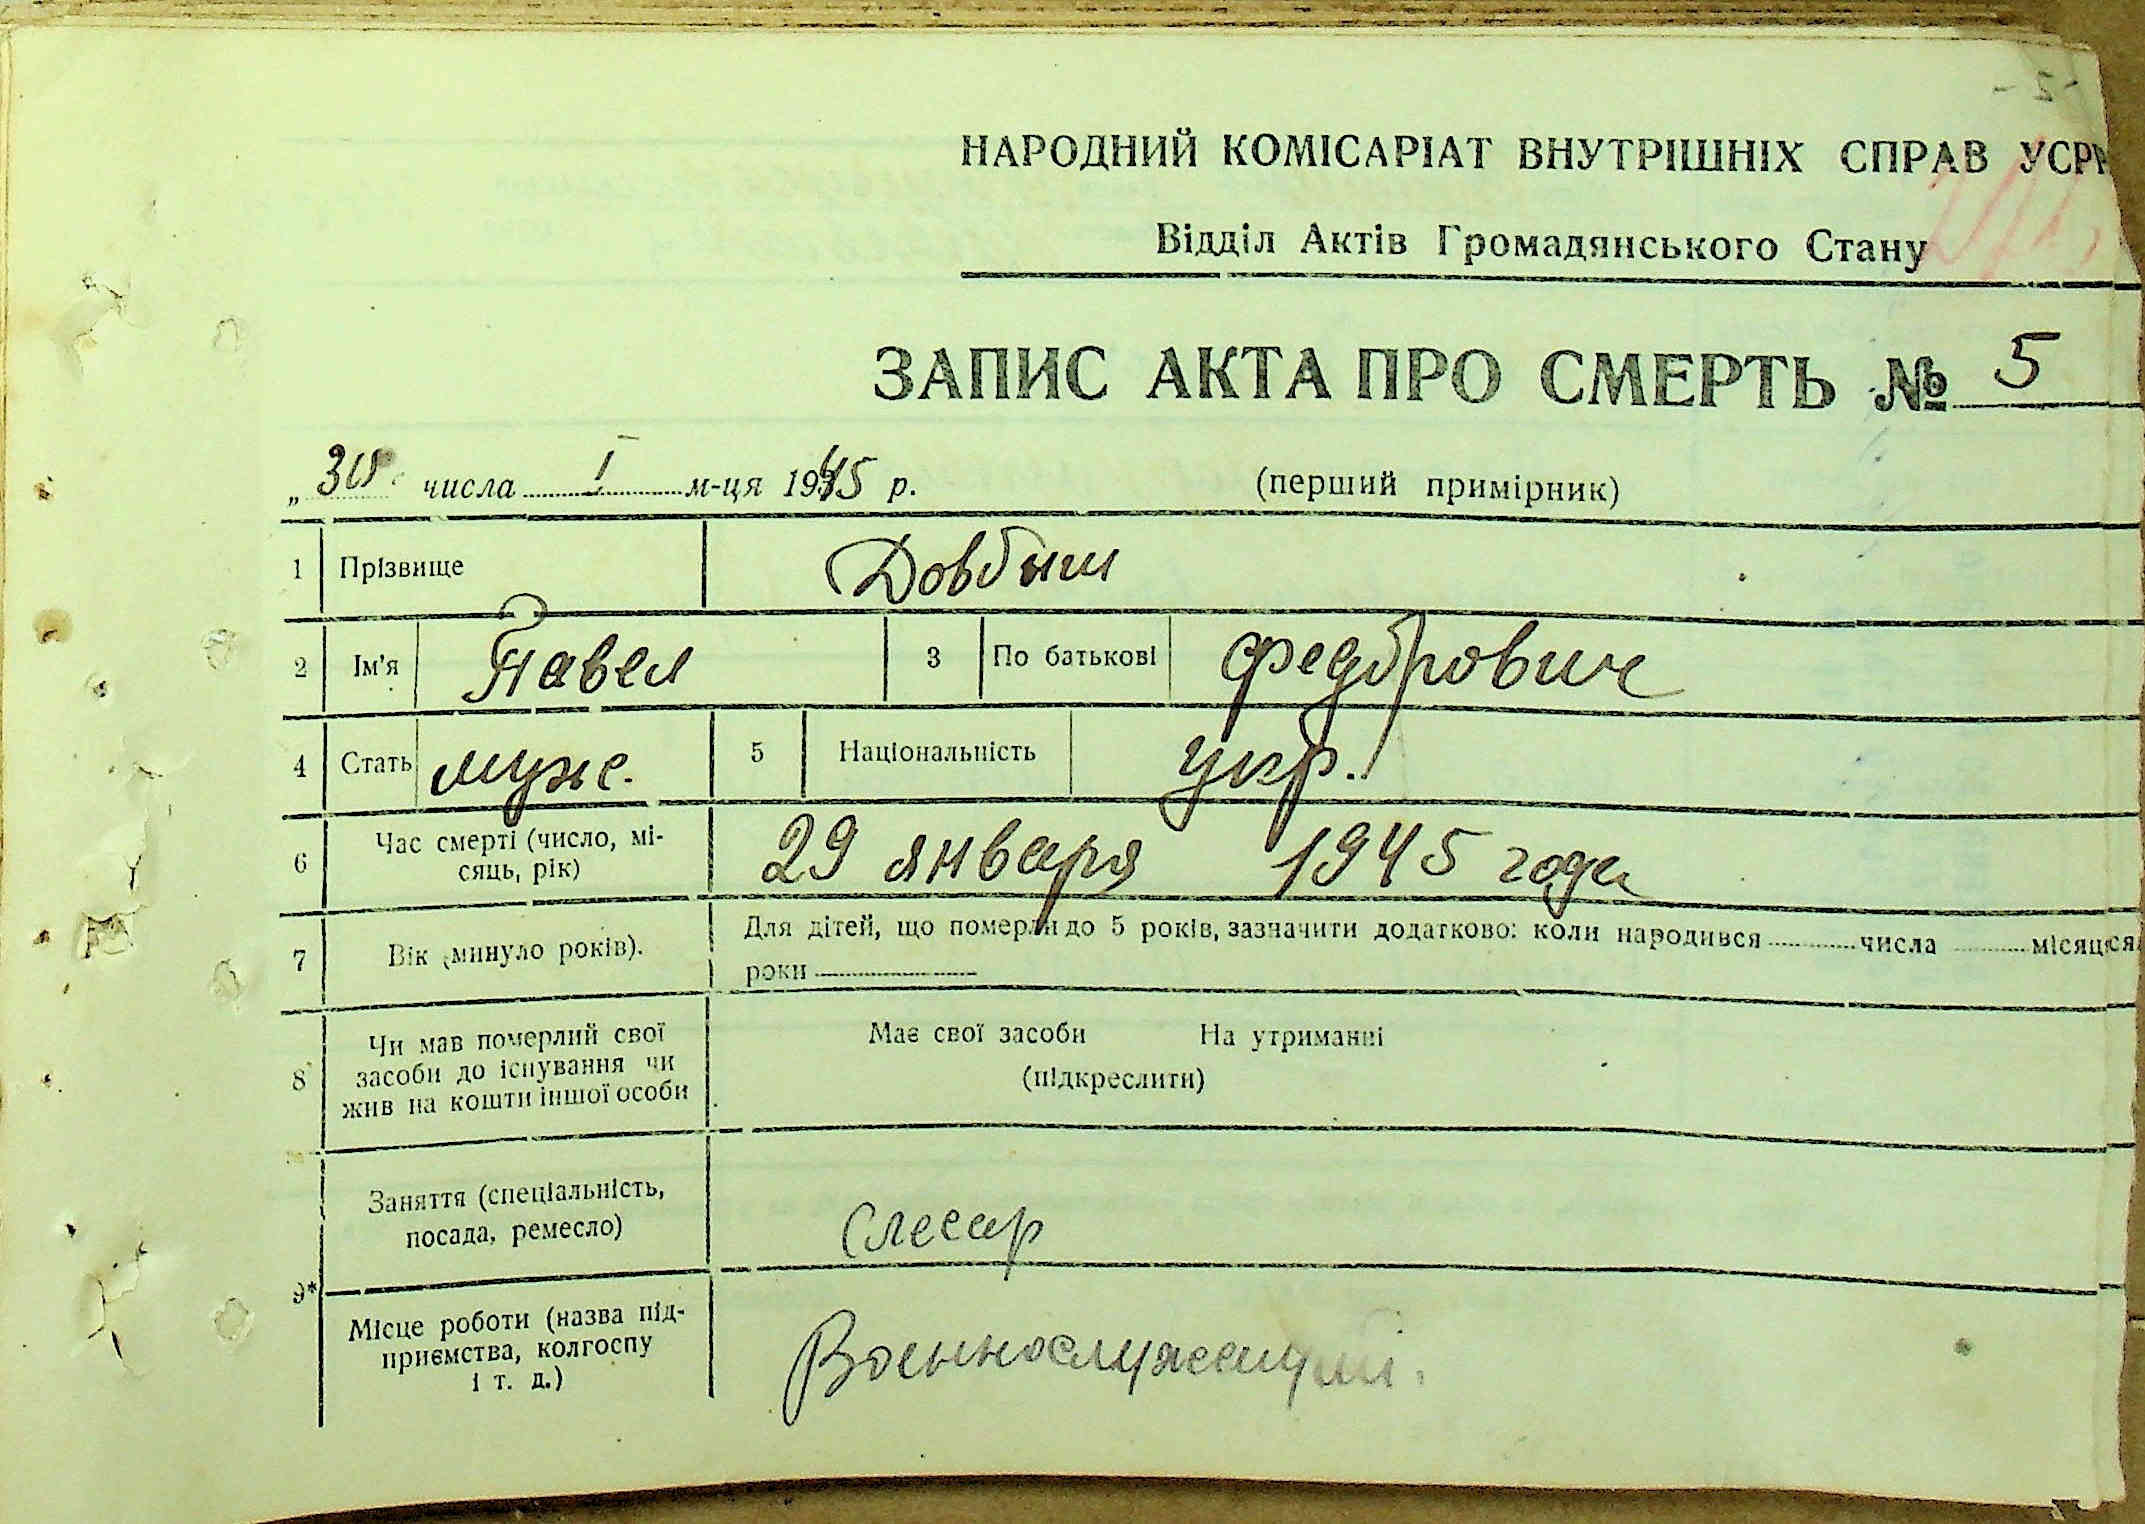 - 2 -
НАРОДНИЙ КОМІСАРІАТ ВНУТРІШНІХ СПРАВ УСРР
Відділ Актів Громадянського Стану
ЗАПИС АКТА ПРО СМЕРТЬ № 5
„ числа I м-ця 1945 р. (перший примірник)
1 Прізвище Довбниш
2 Ім'я Павел 3 По батькові Федорович
4 Стать муже. 5 Національність укр.
6 Час смерті (число, мі-
сяць, рік) 29 января 1945 года
7 Вік (минуло років). Для дітей, що померли до 5 років, зазначити додатково: коли народився числа місяця
роки
8 Чи мав померлий свої
засоби до існування чи
жив на кошти іншої особи
Має свої засоби На утриманні
(підкреслити)
9*
Заняття (спеціальність,
посада, ремесло) Слесар
Місце роботи (назва під-
приємства, колгоспу
і т. д.) Военнослужащий.